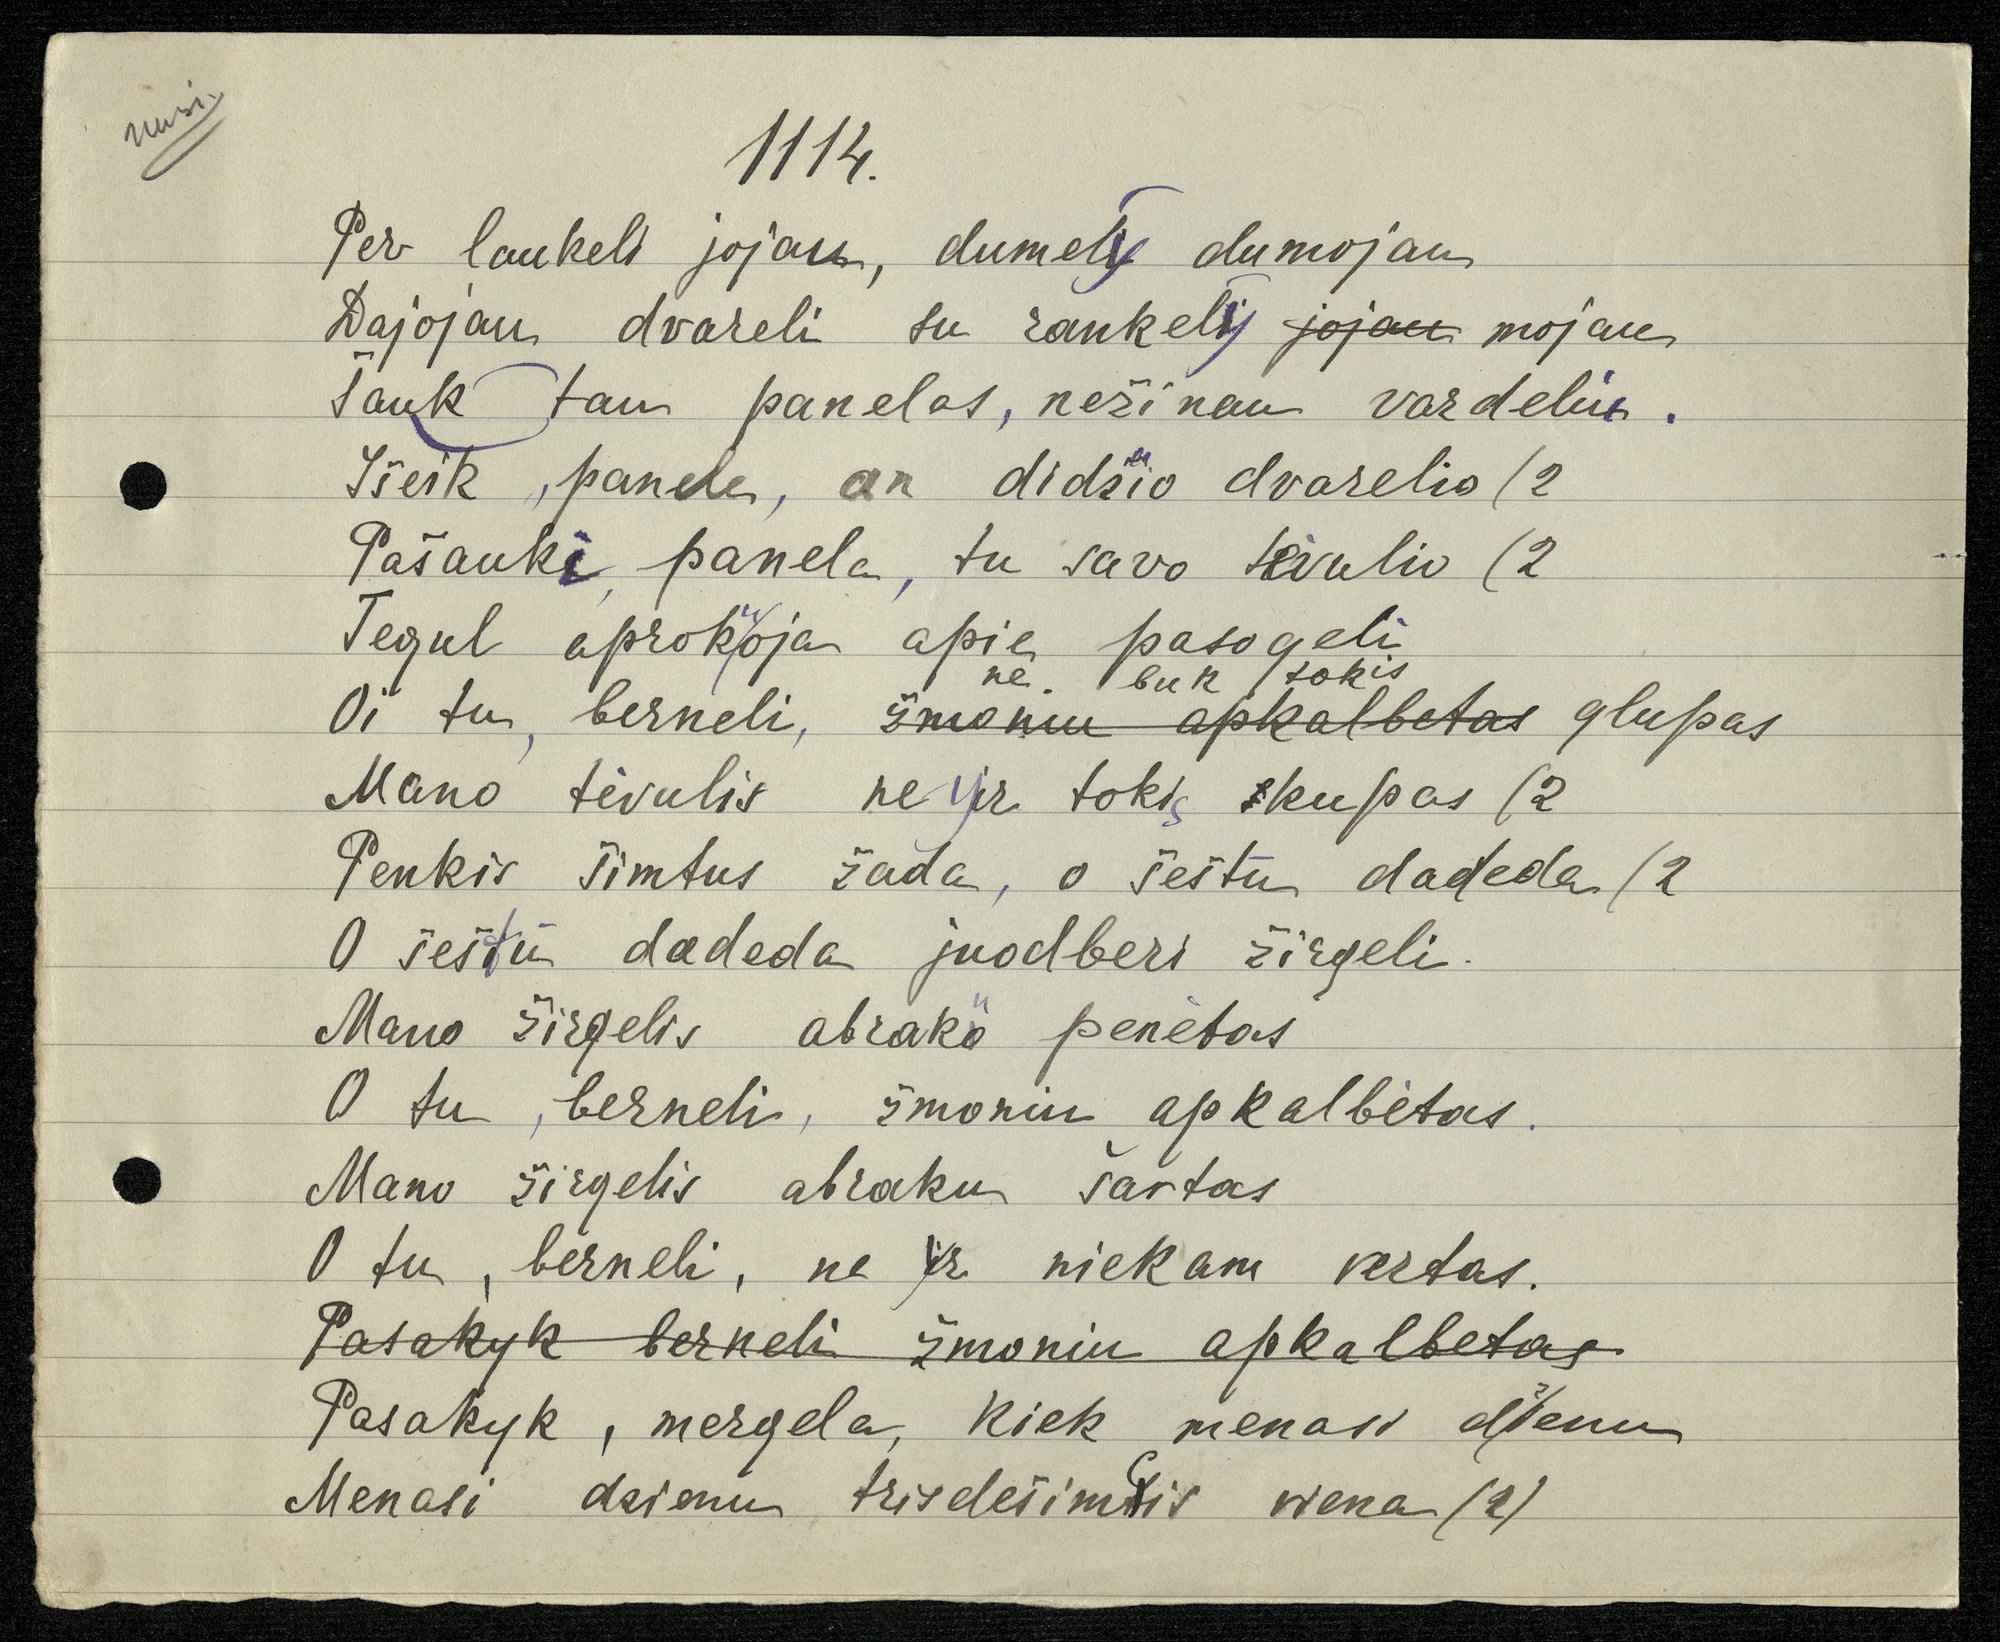 1114.
Per laukeli jojau, dumely dumojau
Dajojau dvareli su rankely jojau mojau
Šauk tau panelas, nežinau vardeliu.
Išeik, panela, an didžio dvarelio (2
Pašauki, panela, tu savo tėvulio (2
Tegul aprokuoja apie pasogeli
ne buk tokis
Oi tu, berneli, žmoniu apkalbetas glupas
Mano tėvulis ne yr tokis skupas (2
Penkis šimtus žada, o šeštu dadeda (2
O šeštu dadeda juodberi žirgeli.
Mano žirgelis abraku penėtas
O tu, berneli, žmoniu apkalbėtas.
Mano žirgelis abraku šartas
O tu, berneli, ne yr niekam vertas.
Pasakyk berneli žmoniu apkalbetas
Pasakyk, mergela, kiek menasi dzienu
Menasi dzienu trisdešimcis viena (2)